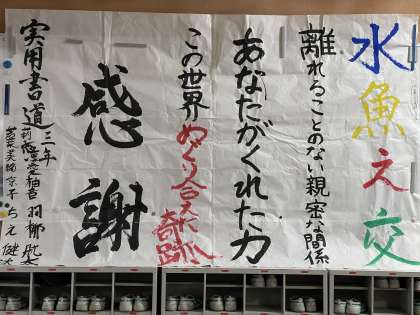 水魚之交
離れることのない親密な関係
あなたがくれた力
この世界めぐり合えた奇跡
感謝
実用書道三年